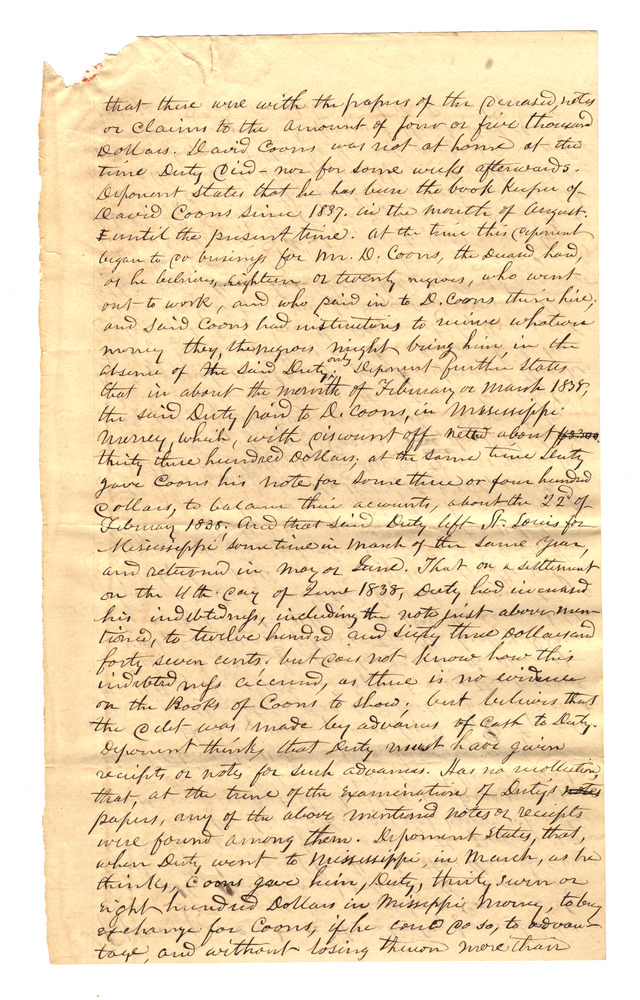 that there were with the papers of the deceased, notes
or Claims to the amount of four or five thousand
Dollars. David Coons was not at home at the
time Duty Died – nor for some weeks afterwards.
Deponent States that he has been the book Keeper of
David Coons since 1837. in the month of August.
& until the present time. at the time this deponent
began to do business for Mr. D. Coons, the Deased had,
as he believes, Eighteen or twenty negroes, who went
out to work, and who paid in to D. Coons their hire;
and said Coons had instructions to receive whatever
money they, the negroes might bring him, in the
absence of the said Duty only. Deponent further States
that in about the month of February or March 1838,
the said Duty paid to D. Coons, in Mississippi
Money, which, with discount off netted about $3300,
thirty three hundred Dollars; at the same time Duty
gave Coons his note for some three or four hundred
Dollars, to balance their accounts, about the 22d of
February 1838. And that said Duty left St. Louis for
Mississippi some time in March of the same Year,
and returned in May or June. That on a settlement
on the 11th day of June 1838, Duty had increased
his indebtedness, including the note just above men-
tioned, to twelve hundred and sixty three Dollars and
forty seven cents. but does not know how this
indebtedness accrued, as there is no evidence
on the Books of Coons to show; but believes that
the debt was made by advances of Cash to Duty.
Deponent thinks that Duty must have given
receipts or notes for such advances. Has no recollection,
that, at the time of the examination of Duty's notes
papers, any of the above mentioned notes or receipts
were found among them. Deponent States, that,
when Duty went to Mississippi, in March, as he
thinks, Coons gave him, Duty, thirty seven or
Eight hundred Dollars in Missippi Money, to buy
exchange for Coons, if he could do so, to advan-
tage, and without losing thereon more than